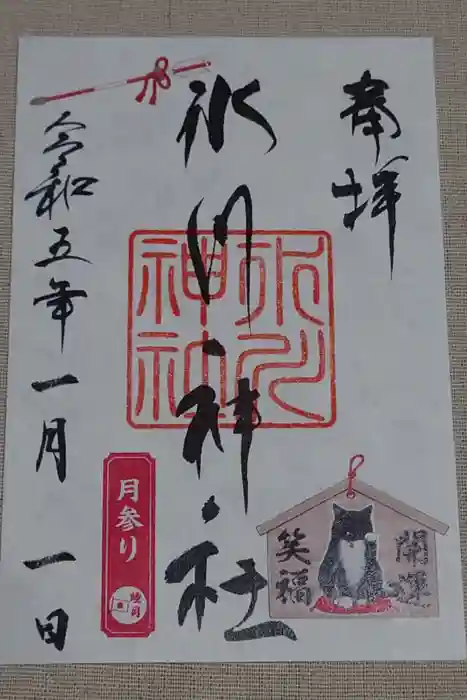 奉拝
氷川神社
氷川
神社
令和五年一月一日
月参り
開運
笑福